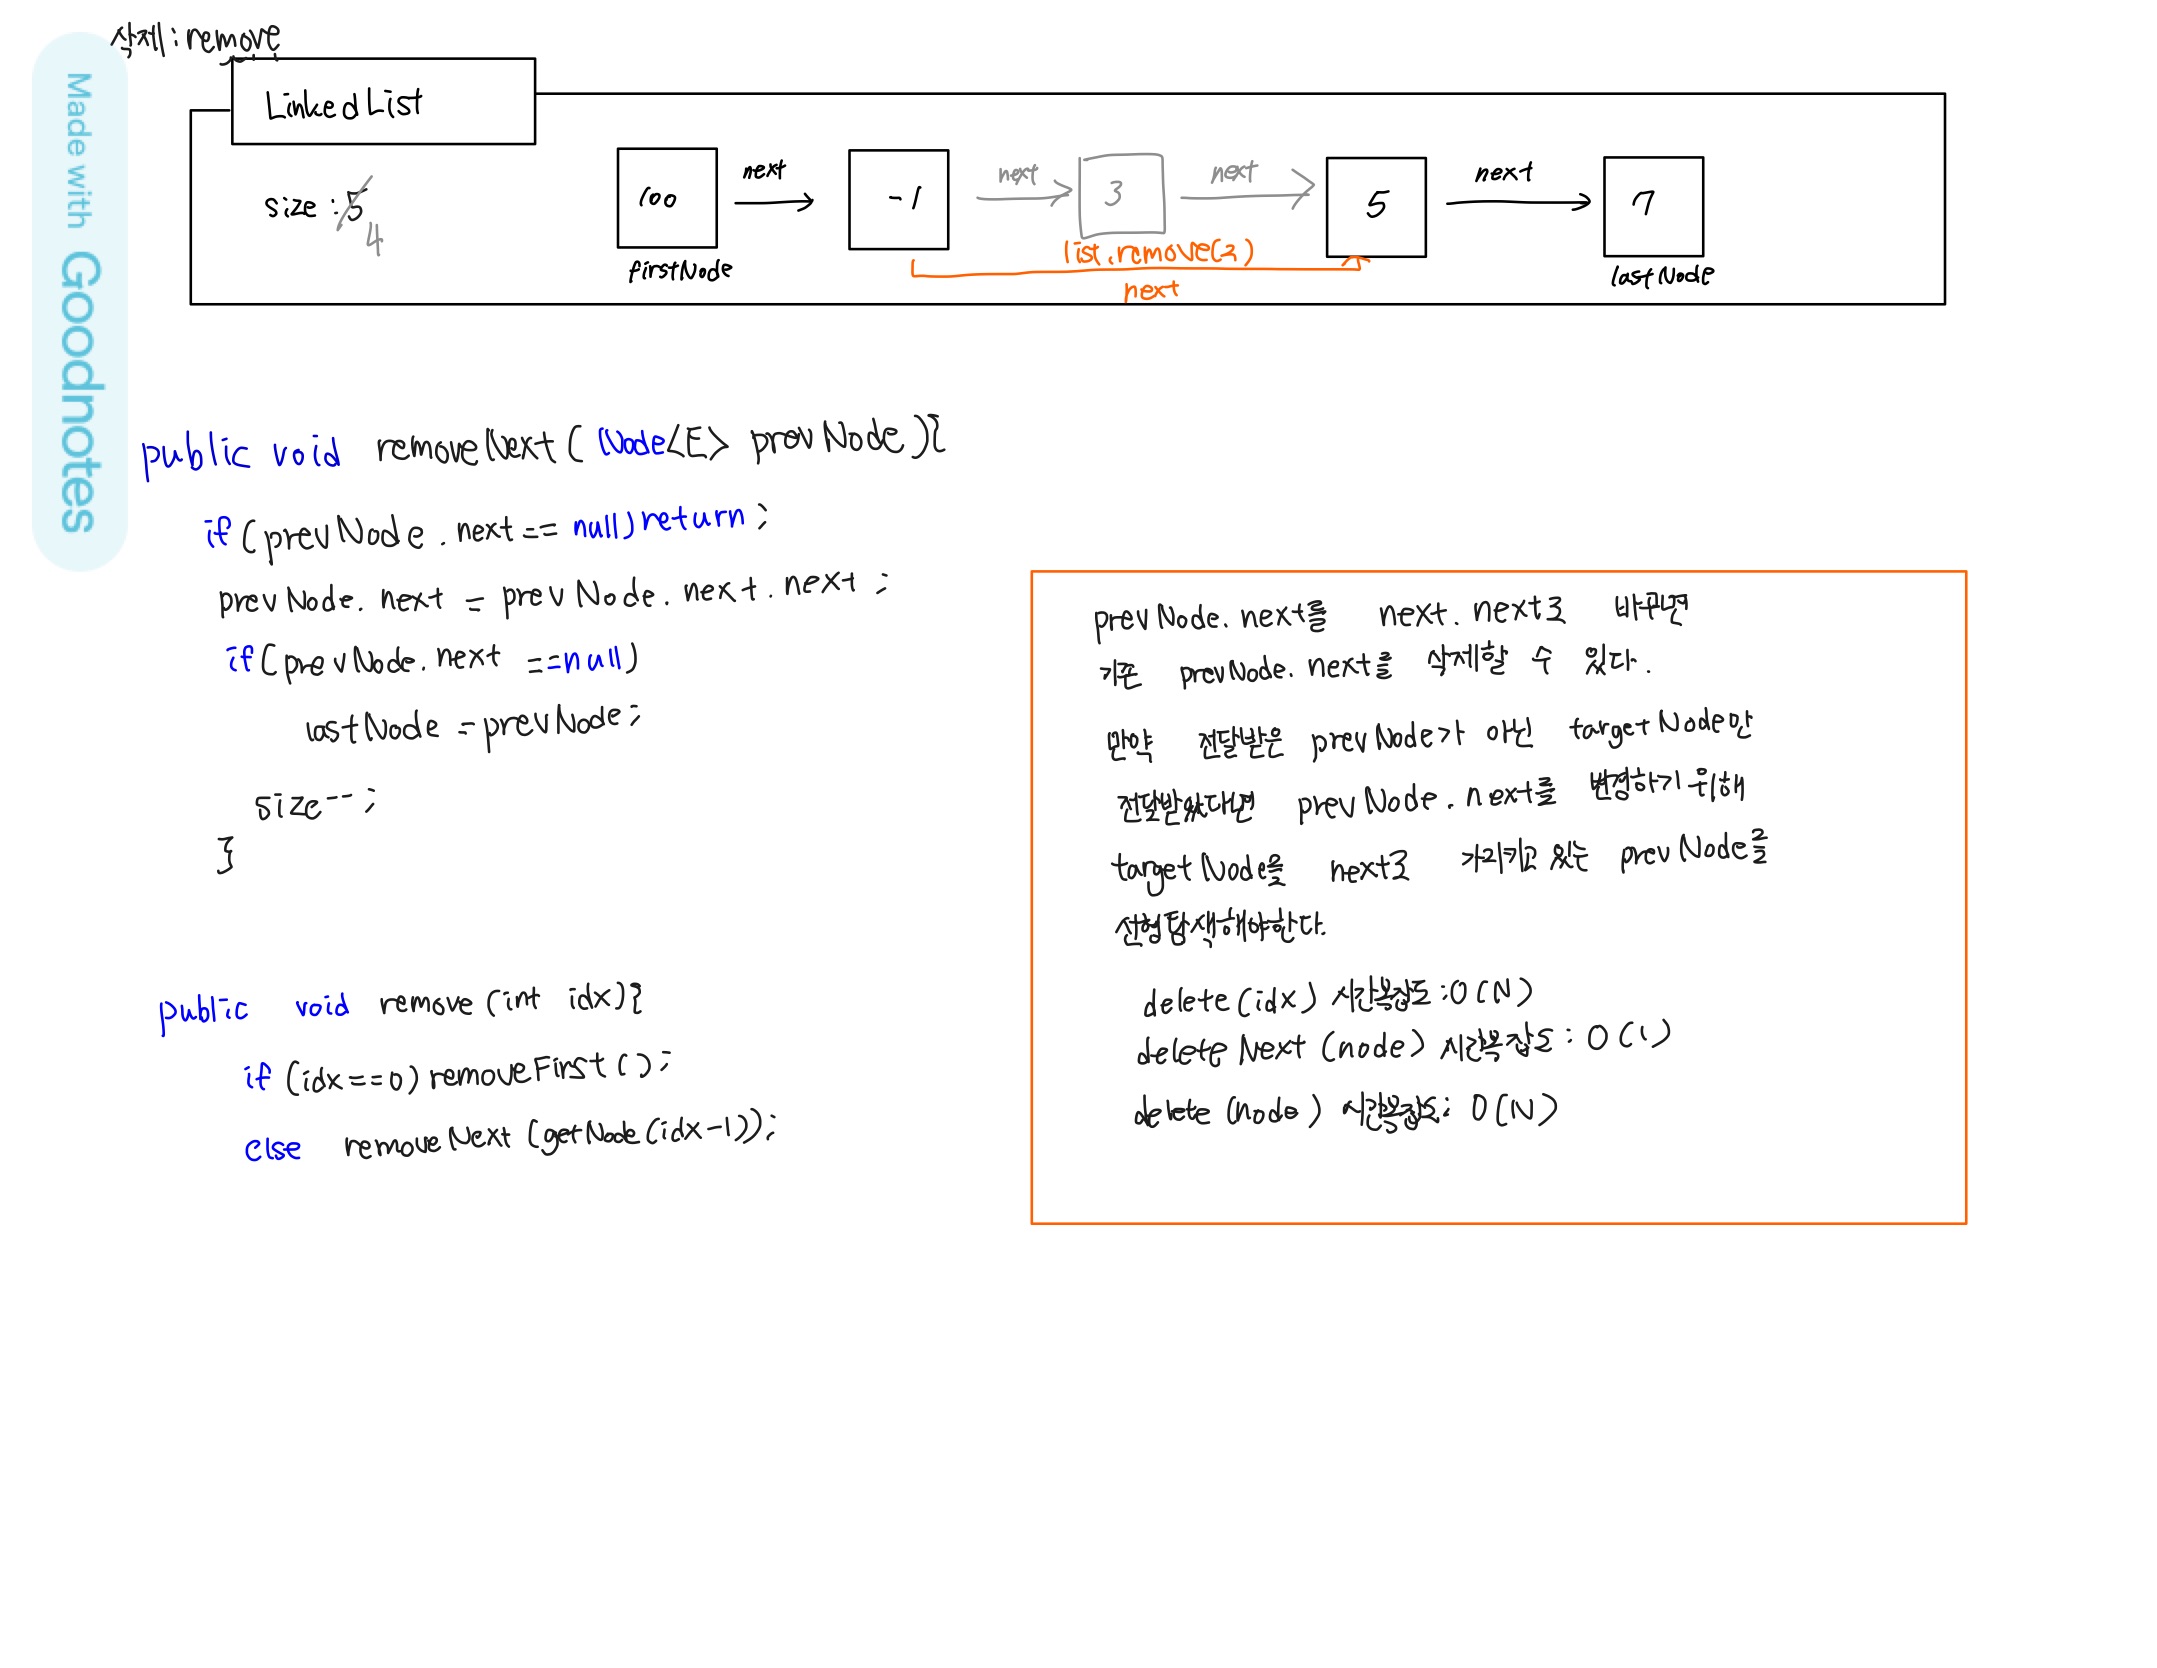 삭제 : remove
LinkedList
size : 5
4
100
next
-1
next
3
next
5
next
7
firstNode
list.remove(2)
lastNode
next
public void removeNext ( Node<E> prevNode ){
if (prevNode . next == null) return ;
prevNode. next = prevNode. next . next ;
if (prevNode. next == null)
lastNode = prevNode;
size-- ;
}
public void remove (int idx){
if (idx==0) removeFirst ();
else removeNext (getNode(idx-1));
prevNode. next를 next. next로 바꾸면
기존 prevNode. next를 삭제할 수 있다.
만약 전달받은 prevNode가 아닌 targetNode만
전달받았다면 prevNode. next를 변경하기 위해
targetNode을 next로 가리키고 있는 prevNode를
선형탐색해야한다.
delete(idx) 시간복잡도 : O(N)
deleteNext (node) 시간복잡도 : O(1)
delete (node) 시간복잡도 : O(N)
Made with Goodnotes